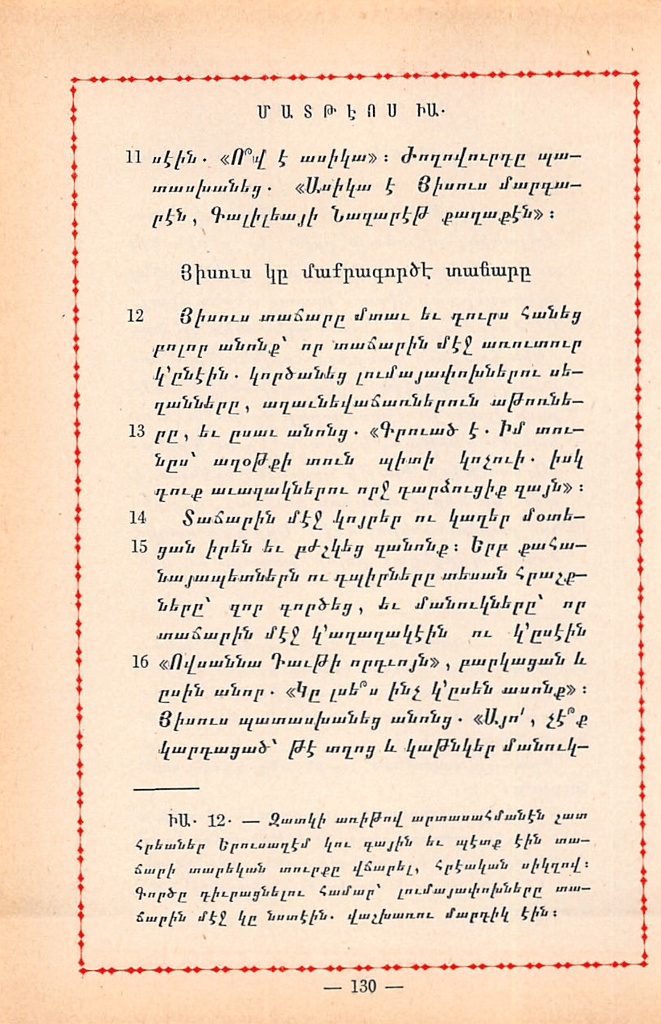 ՄԱՏԹԷՈՍ ԻԱ.
11 սէին. «Ո՞վ է ասիկա»: Ժողովուրդը պա—
տասխանեց. «Ասիկա է Յիսուս մարգա—
րէն, Գալիլեայի Նազարէթ քաղաքէն»:
Յիսուս կը մաքրագործէ տաճարը
12 Յիսուս տաճարը մտաւ եւ դուրս հանեց
բոլոր անոնք՝ որ տաճարին մէջ առուտուր
կ՚ընէին. կործանեց լումայափոխներու սե—
ղանները, աղաւնեվաճառներուն աթոռնե—
13 րը, եւ ըսաւ անոնց. «Գրուած է. Իմ տու—
նըս՝ աղօթքի տուն պիտի կոչուի. իսկ
դուք աւազակներու որջ դարձուցիք զայն»:
14 Տաճարին մէջ կոյրեր ու կաղեր մօտե—
15 ցան իրեն եւ բժշկեց զանոնք: Երբ քահա—
նայապետներն ու դպիրները տեսան հրաշք—
ները՝ զոր գործեց, եւ մանուկները՝ որ
տաճարին մէջ կ՚աղաղակէին ու կ՚ըսէին
16 «Ովսաննա Դաւթի որդւոյն», բարկացան և
ըսին անոր. «Կը լսե՞ս ինչ կ՚ըսեն ասոնք»:
Յիսուս պատասխանեց անոնց. «Այո՛, չէ՞ք
կարդացած՝ թէ տղոց և կաթնկեր մանուկ—
ԻԱ. 12. — Զատկի առիթով արտասահմանէն շատ
հրեաներ Երուսաղէմ կու գային եւ պէտք էին տա—
ճարի տարեկան տուրքը վճարել, հրէական սիկղով:
Գործը դիւրացնելու համար՝ լումայափոխները տա—
ճարին մէջ կը նստէին. վաշխառու մարդիկ էին:
— 130 —